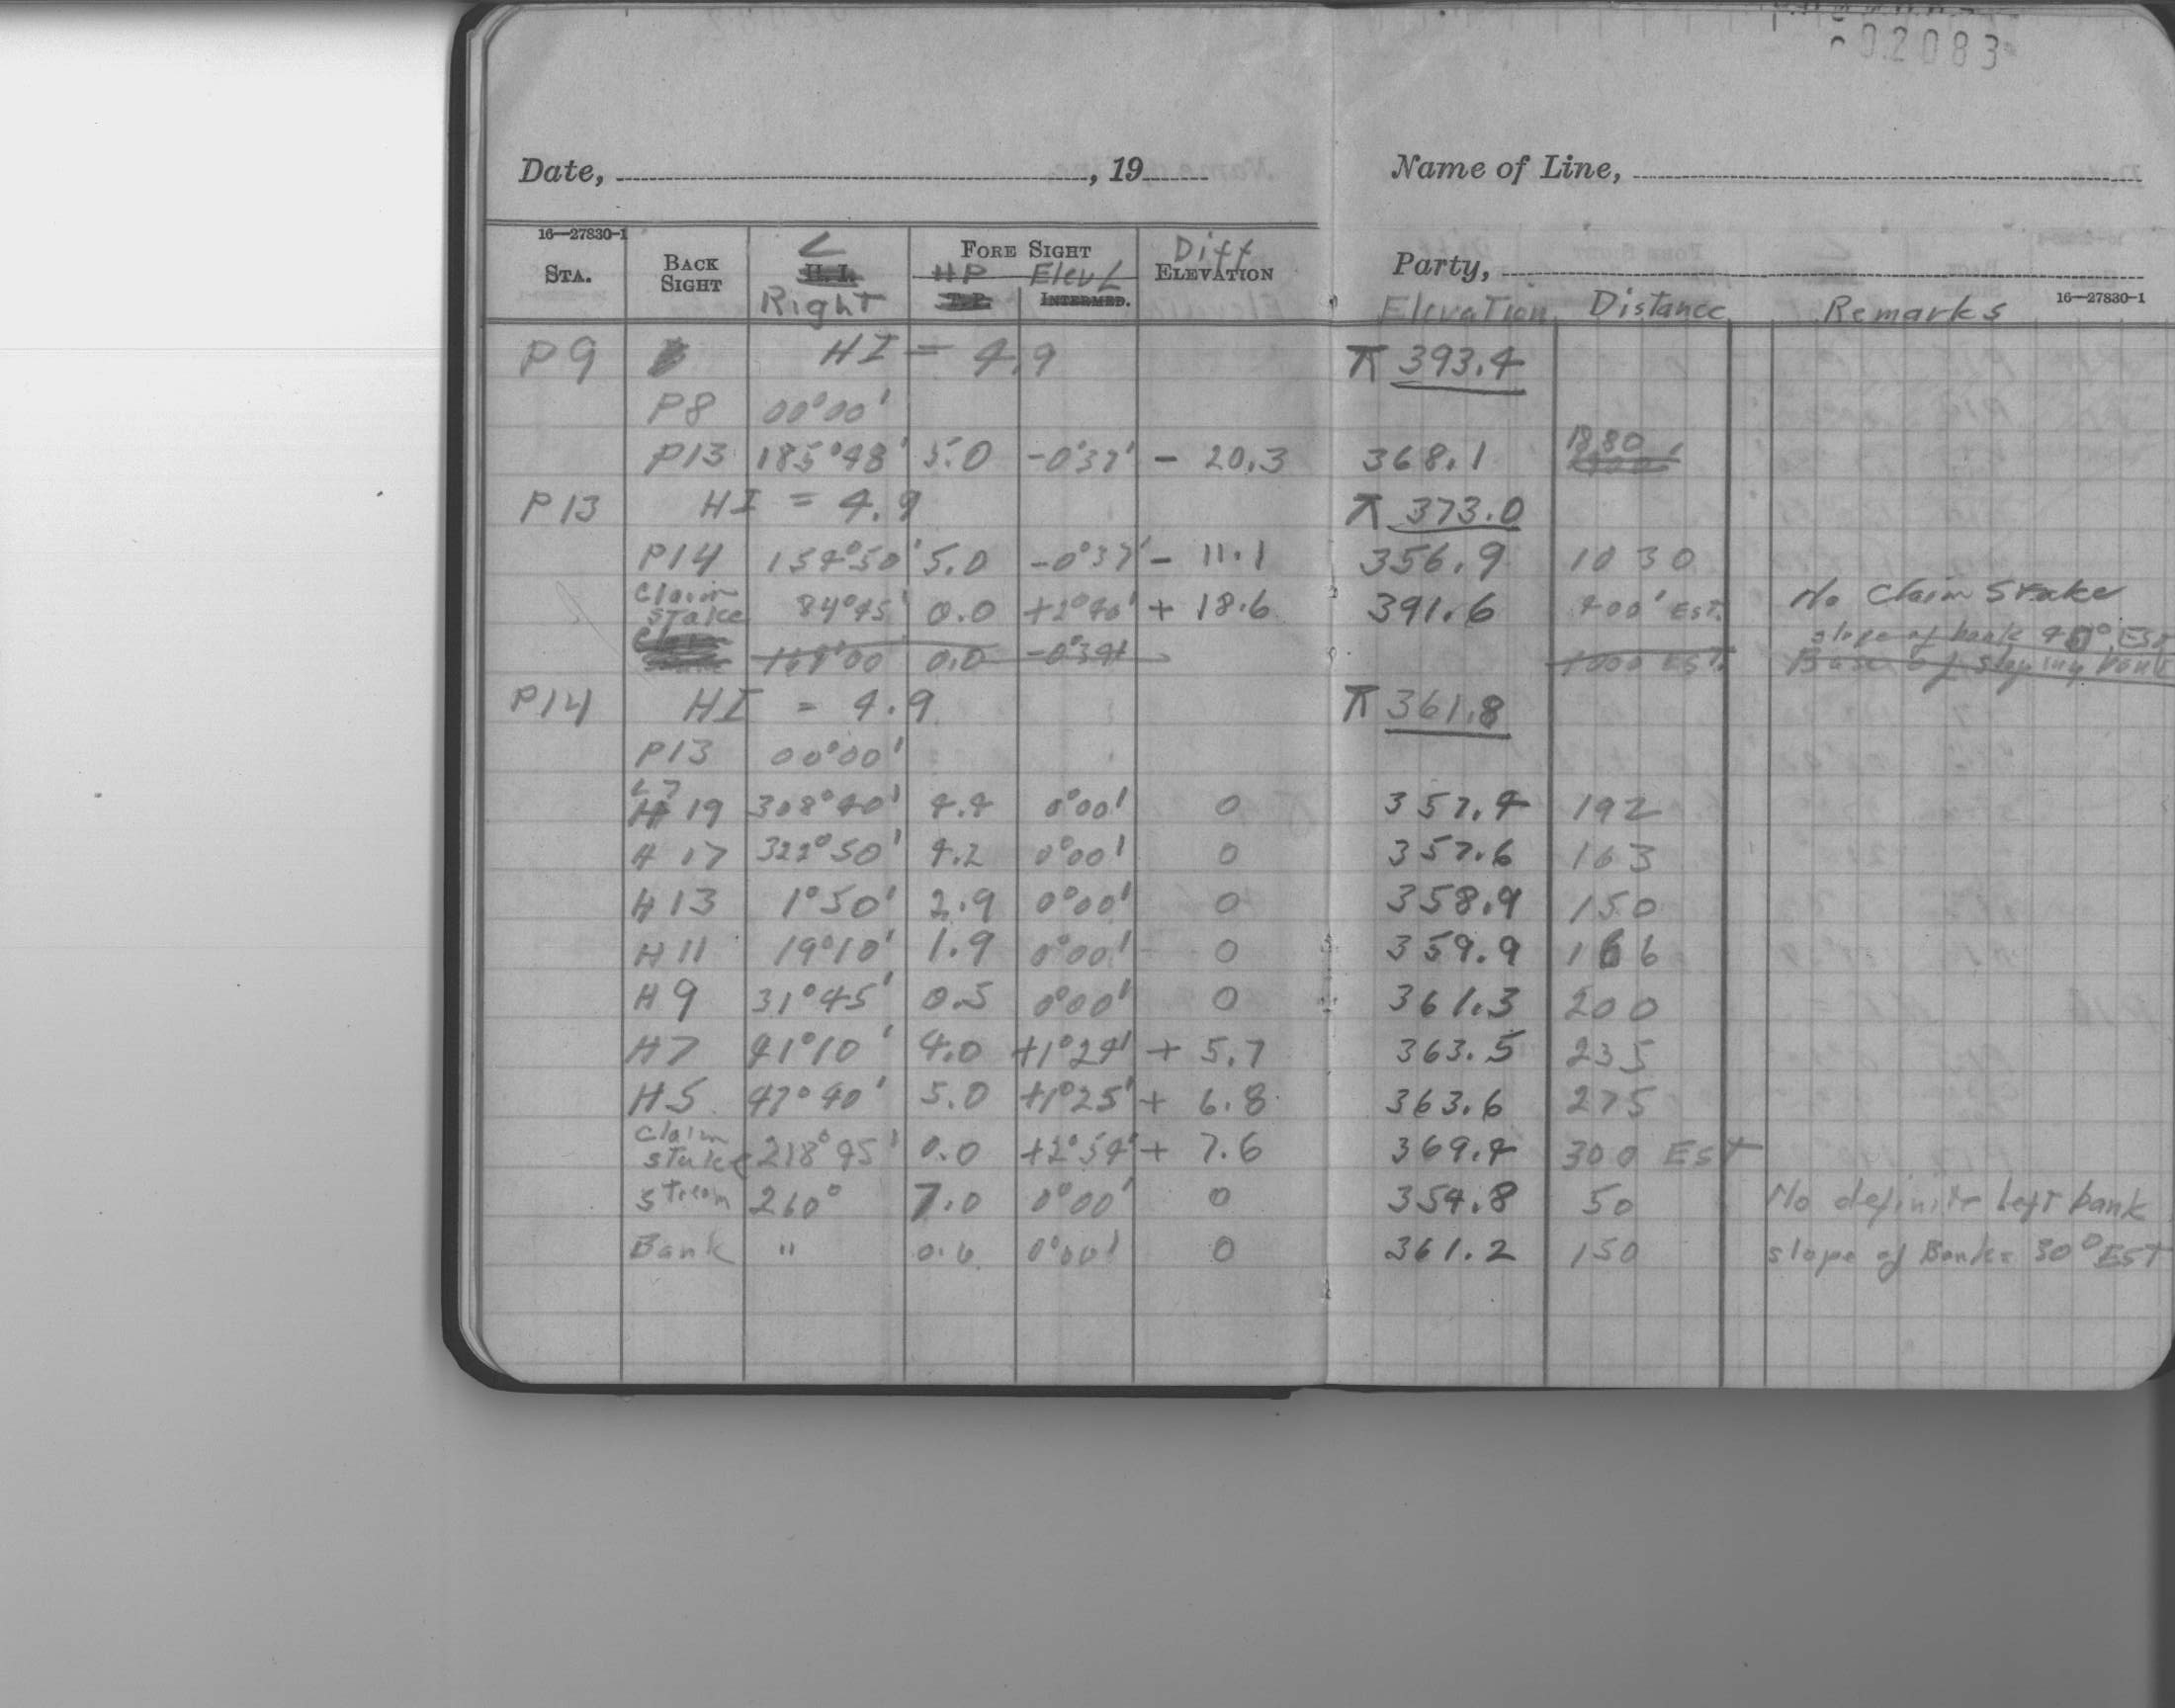 02083
Date, , 19
Name of Line,
16—27830-1
STA. BACK SIGHT ∠ H.I. Right FORE SIGHT HP T.P. Elev ∠ INTERMED. Diff ELEVATION
Party,
Elevation Distance Remarks 16—27830-1
P9 HI = 4.9 ⊼ 393.4
P8 00°00'
P13 185°48' 5.0 -0°37' - 20.3 368.1 1880
P13 HI = 4.9 ⊼ 373.0
P14 154°50' 5.0 -0°37' - 11.1 356.9 1030
Claim Stake 84°45' 0.0 +2°40' + 18.6 391.6 400' EST. No Claim Stake
slope of bank 45° EST
169°00 0.0 -0°34' 1000 EST. Base of sloping bank
P14 HI = 4.9 ⊼ 361.8
P13 00°00'
H 19 308°40' 4.4 0°00' 0 357.4 192
H 17 322°50' 4.2 0°00' 0 357.6 163
H 13 1°50' 2.9 0°00' 0 358.9 150
H 11 19°10' 1.9 0°00' 0 359.9 166
H 9 31°45' 0.5 0°00' 0 361.3 200
H7 41°10' 4.0 +1°24' + 5.7 363.5 235
H5 47°40' 5.0 +1°25' + 6.8 363.6 275
Claim stake 218°45' 0.0 +2°54' + 7.6 369.4 300 EST
Stream 260° 7.0 0°00' 0 354.8 50 No definite left bank
Bank " 0.6 0°00' 0 361.2 150 slope of Bank = 30° EST